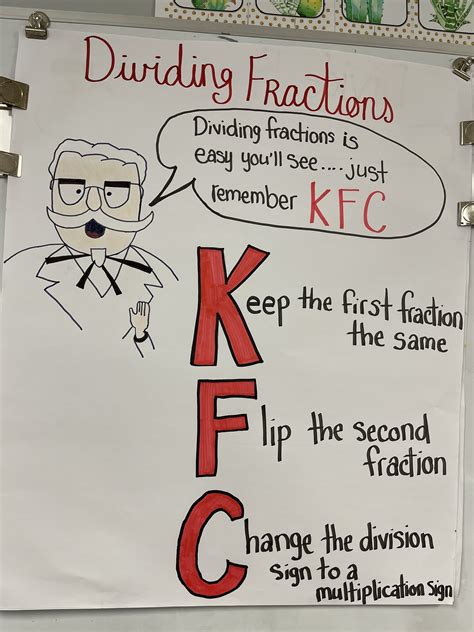 Dividing Fractions
Dividing fractions is
easy you'll see....just
remember KFC
Keep the first fraction
the same
Flip the second
fraction
Change the division
sign to a
multiplication sign